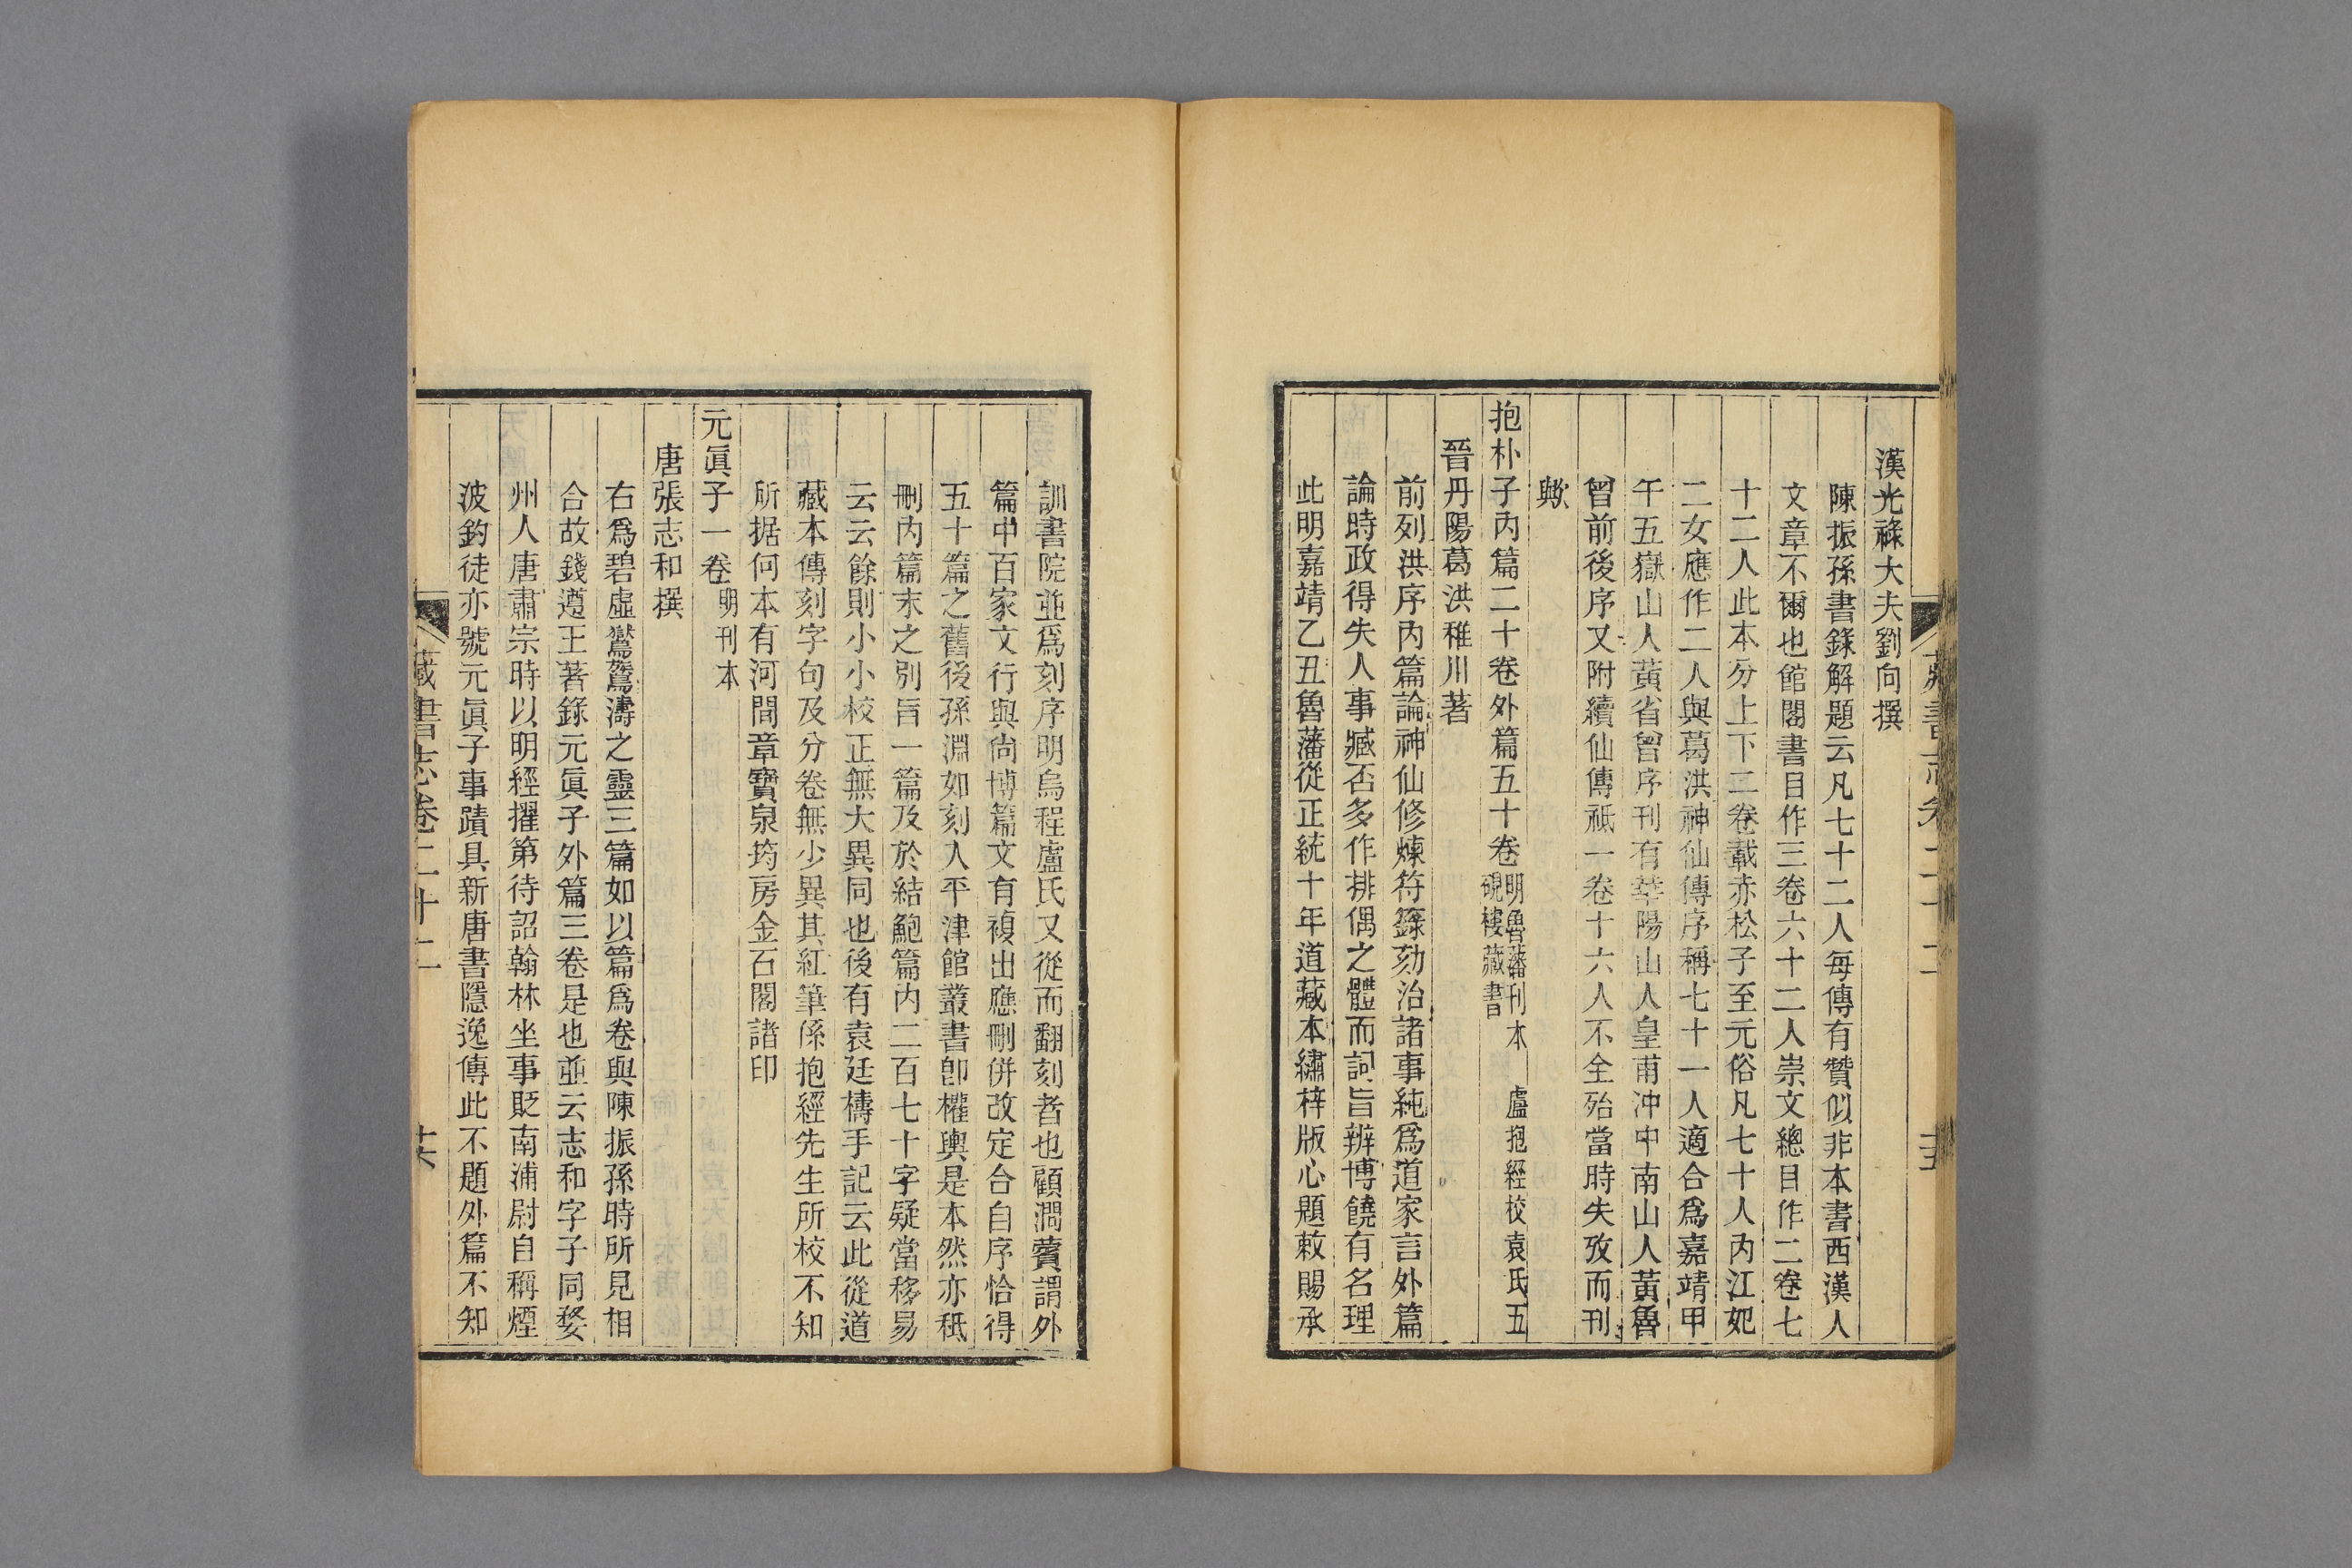 漢光祿大夫劉向撰
陳振孫書錄解題云凡七十二人每傳有贊似非本書西漢人
文章不爾也館閣書目作三卷六十二人崇文總目作二卷七
十二人此本分上下二卷載赤松子至元俗凡七十人內江妃
二女應作二人與葛洪神仙傳序稱七十一人適合爲嘉靖甲
午五嶽山人黃省曾序刊有華陽山人皇甫沖中南山人黃魯
曾前後序又附續仙傳祗一卷十六人不全殆當時失攷而刊
歟
抱朴子內篇二十卷外篇五十卷 明魯藩刊本 盧抱經校袁氏五
硯樓藏書
晉丹陽葛洪稚川著
前列洪序內篇論神仙修煉符籙劾治諸事純爲道家言外篇
論時政得失人事臧否多作排偶之體而詞旨辨博饒有名理
此明嘉靖乙丑魯藩從正統十年道藏本繡梓版心題敕賜承
訓書院並爲刻序明烏程盧氏又從而翻刻者也顧澗薲謂外
篇中百家文行與尚博篇文有複出應刪併改定合自序恰得
五十篇之舊後孫淵如刻入平津館叢書卽權輿是本然亦秖
刪內篇末之別旨一篇及於結鮑篇內二百七十字疑當移易
云云餘則小小校正無大異同也後有袁廷檮手記云此從道
藏本傳刻字句及分卷無少異其紅筆係抱經先生所校不知
所据何本有河間章寶泉筠房金石閣諸印
元眞子一卷 明刊本
唐張志和撰
右爲碧虛鸑鷟濤之靈三篇如以篇爲卷與陳振孫時所見相
合故錢遵王著錄元眞子外篇三卷是也並云志和字子同婺
州人唐肅宗時以明經擢第待詔翰林坐事貶南浦尉自稱煙
波釣徒亦號元眞子事蹟具新唐書隱逸傳此不題外篇不知
藏書志卷二十二